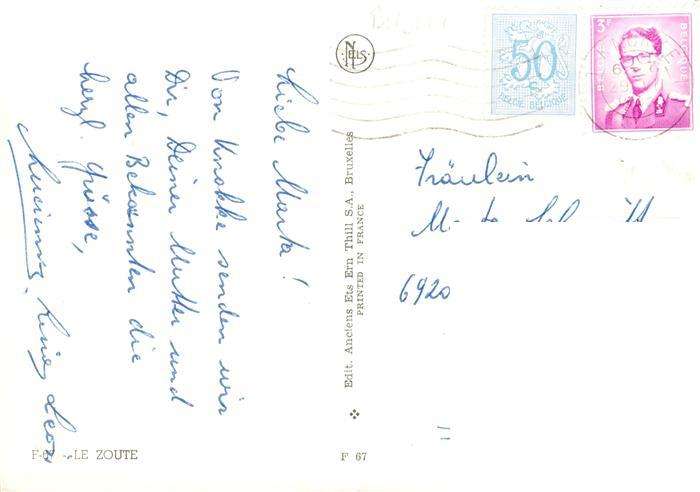 Liebe Marta!
Von Knokke senden wir
Dir, Deiner Mutter und
allen Bekannten die
herzl. Grüsse,
F- LE ZOUTE
NELS
Edit. Anciens Ets Ern Thill S.A., Bruxelles
PRINTED IN FRANCE
F 67
50
C
BELGIE BELGIQUE
3F
Fräulein
6920